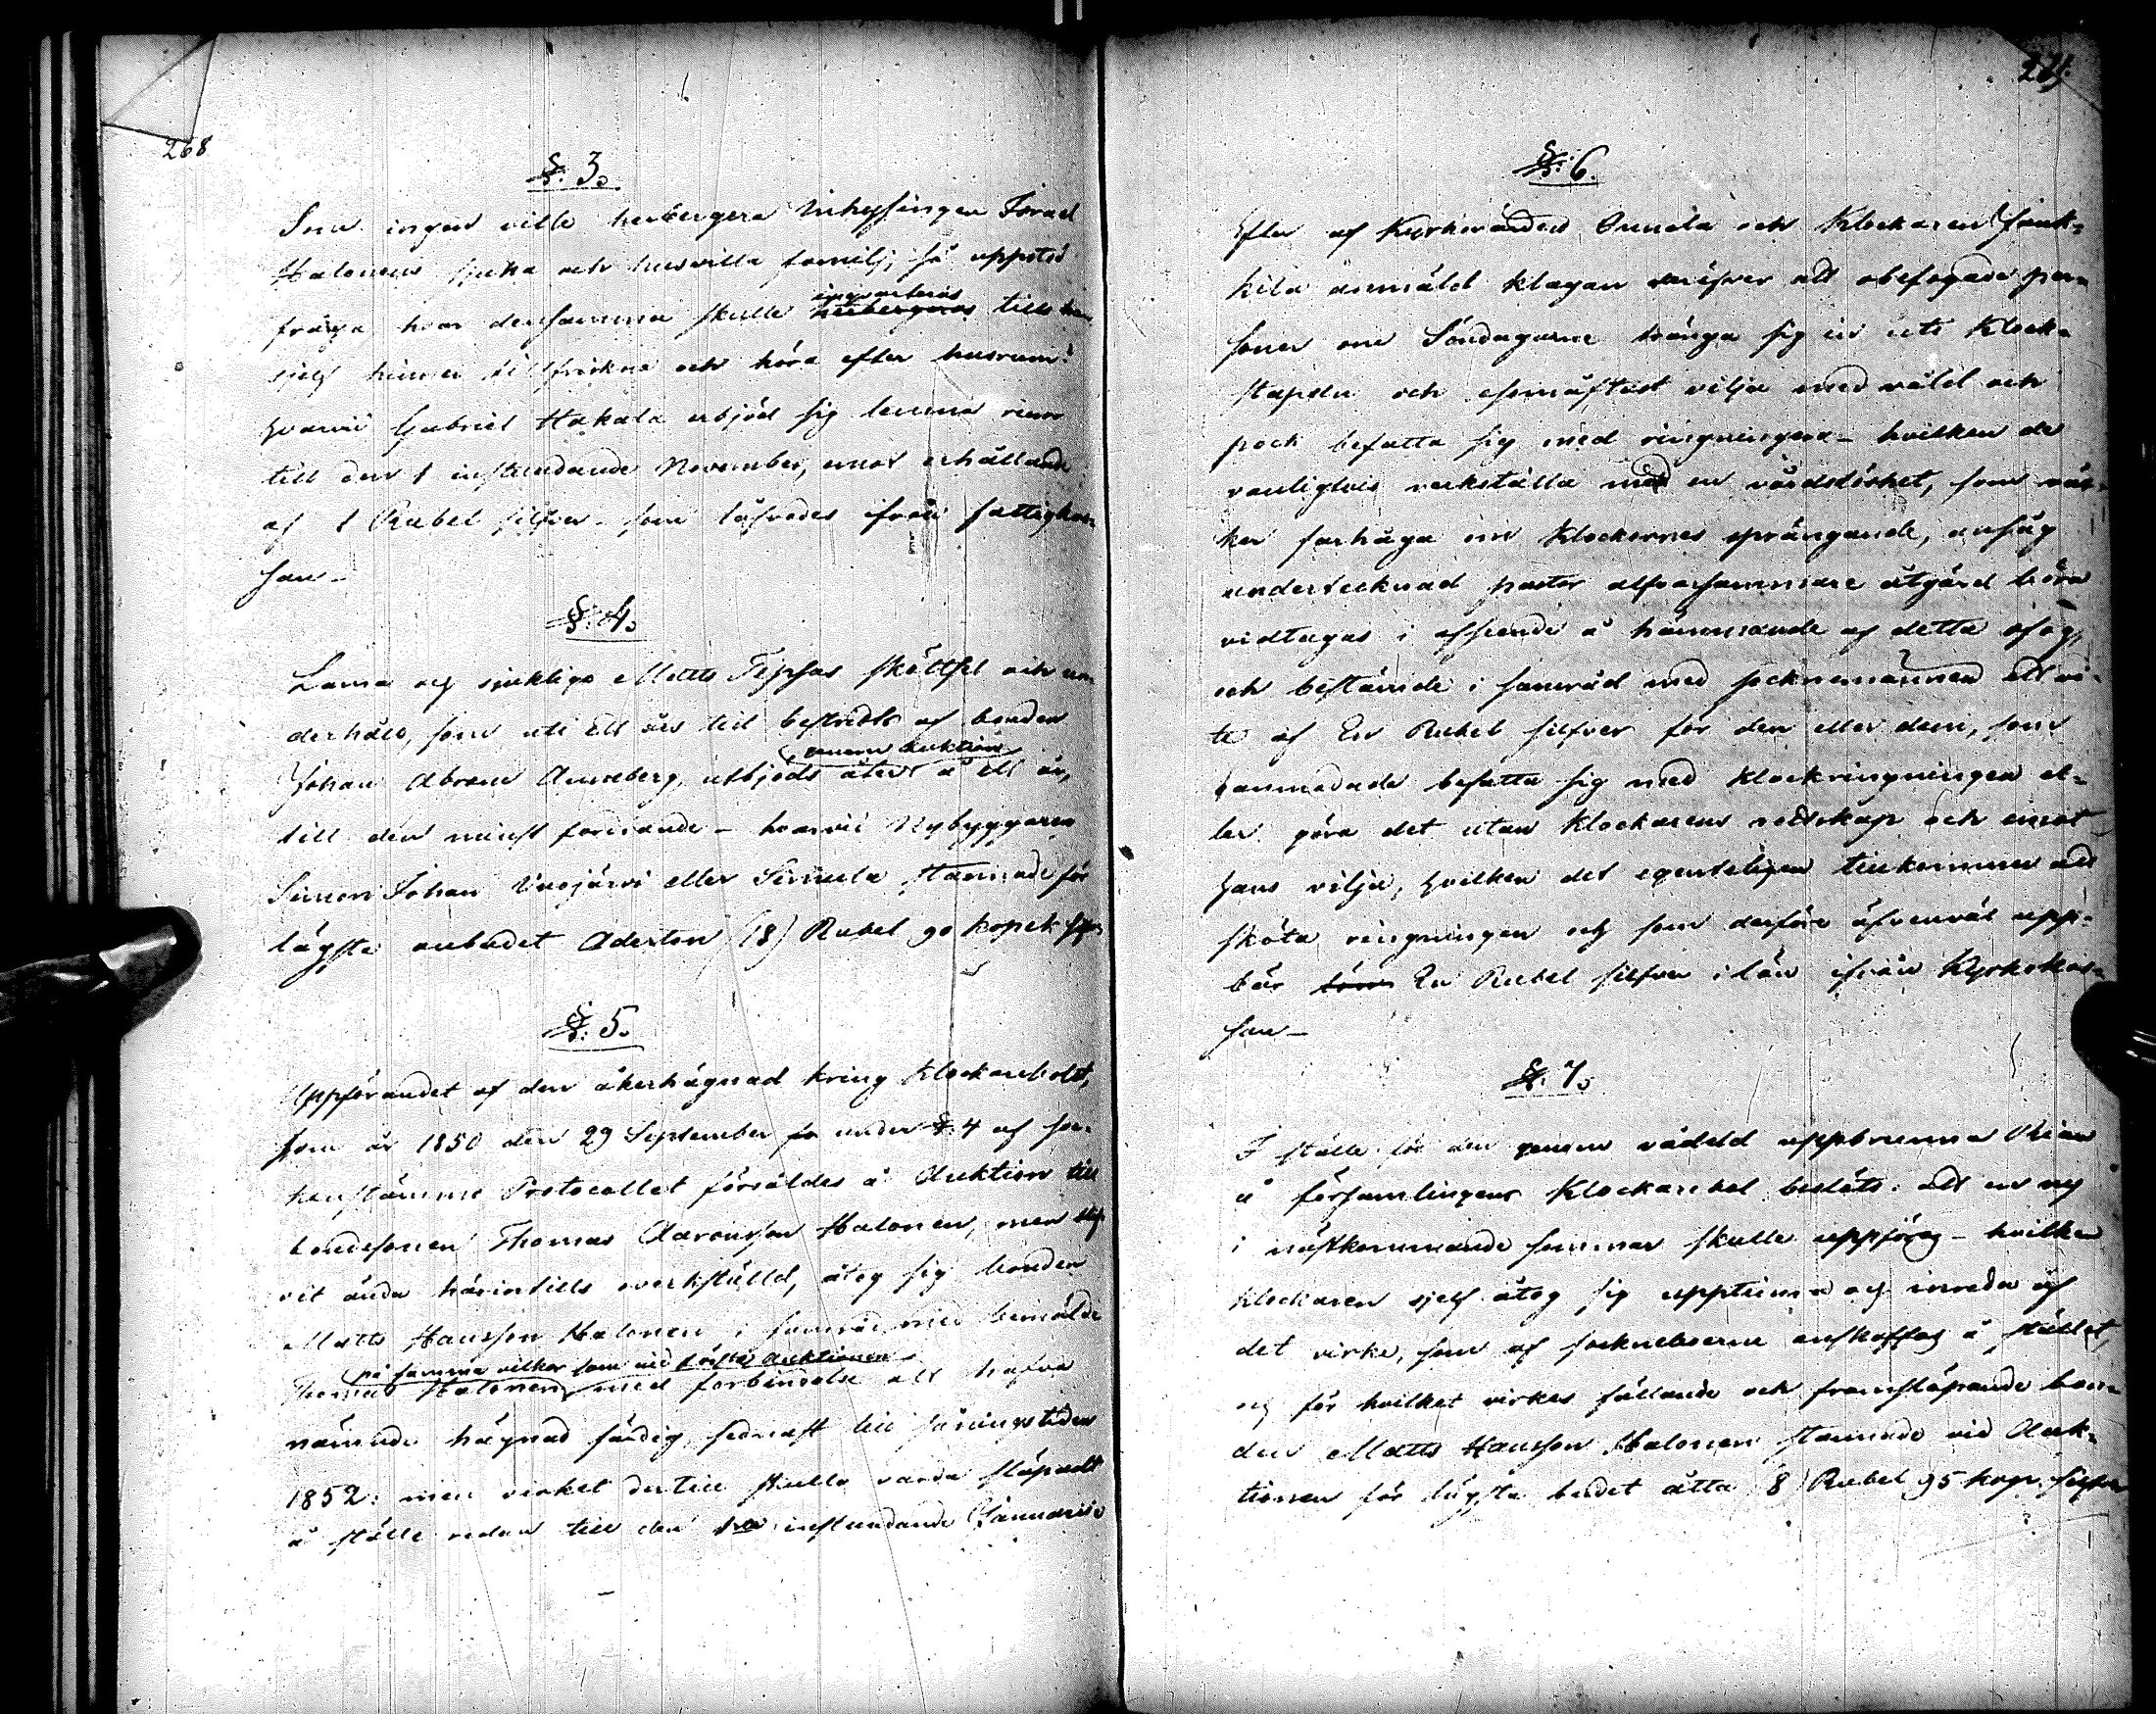 268
§. 3.
Som ingen ville herbergera Inhysingen Israel
Halonens sjuka och husvilla familj, så uppstod
fråga hvar densamma skulle inqvarteras herbergeras tills han
sjelf hinner tillfriskna och höra efter husrum:
hvarvid Gabriel Hakala erbjöd sig lemna rum
till den 1 instundande November, emot erhållande
af 1 Rubel silfver som lofvades ifrån fattigkas-
san
§. 4.
Lama och sjukliga Matts skötsel och un-
derhåld, som uti ett års tid bestridts af bonden
Johan Abram Anneberg, utbjöds genom Auktion åter å ett år,
till den minst fordrande - hvarvid Nybyggaren
Simon Johan eller stannade för
lägsta anbudet Aderton (18) Rubel 90 kopek silfver
§. 5.
Uppförandet af den åkerhägnad kring Klockarebolet,
som år 1850 den 29 September under §. 4 af soc-
kenstämmo Protocollet försåldes å Auktion till
bondesonen Thomas Aaronsson Halonen, men ej bli-
vit ända härintills verkställd, åtog sig bonden
Matts Hansson Halonen i samråd med bemälde
på samma vilkor som vid första Auktionen
Thomas Halonen med förbindelse att hafva
nämnde hägnad färdig sednast till såningstiden
1852: men virket dertill skulle varda släpadt
å stället redan till den 1sta instundande Januarii
271.
§. 6.
Efter af Kyrkovärden Annala och Klockaren
anmäld klagan öfver att obefogade per-
soner om Söndagarne tränga sig in uti Klock-
stapeln och esomoftast vilja med våld och
pock befatta sig med ringningen - hvilken de
vanligtvis verkställa med en vårdslöshet, som väc-
ker farhåga om Klockornes sprängande, ansåg
undertecknad pastor alfvarsammare åtgärd böra
vidtagas i afseende å hämmande af detta ofog,
och bestämde i samråd med socknemännen ett vi-
te af En Rubel silfver för den eller dem, som
oanmodade befatta sig med Klockringningen el-
ler göra det utan Klockarens vettskap och emot
hans vilja, hvilken det egenteligen tillkommer att
sköta ringningen och som derföre äfvenväl upp-
bär En Rubel silfver i lön ifrån Kyrkokas-
san
§. 7.
I stället för den genom vådeld uppbrunna Rian
å församlingens Klockarebol beslöts: att en ny
i nästkommande sommar skulle uppföras - hvilken
Klockaren sjelf åtog sig upptimra och inreda af
det virke, som af sockneboerne anskaffas å stället,
och för hvilket virkes fällande och framsläpande bon-
den Matts Hansson Halonen stannade vid Auk-
tionen för lägsta budet åtta (8) Rubel 95 kop. silfver